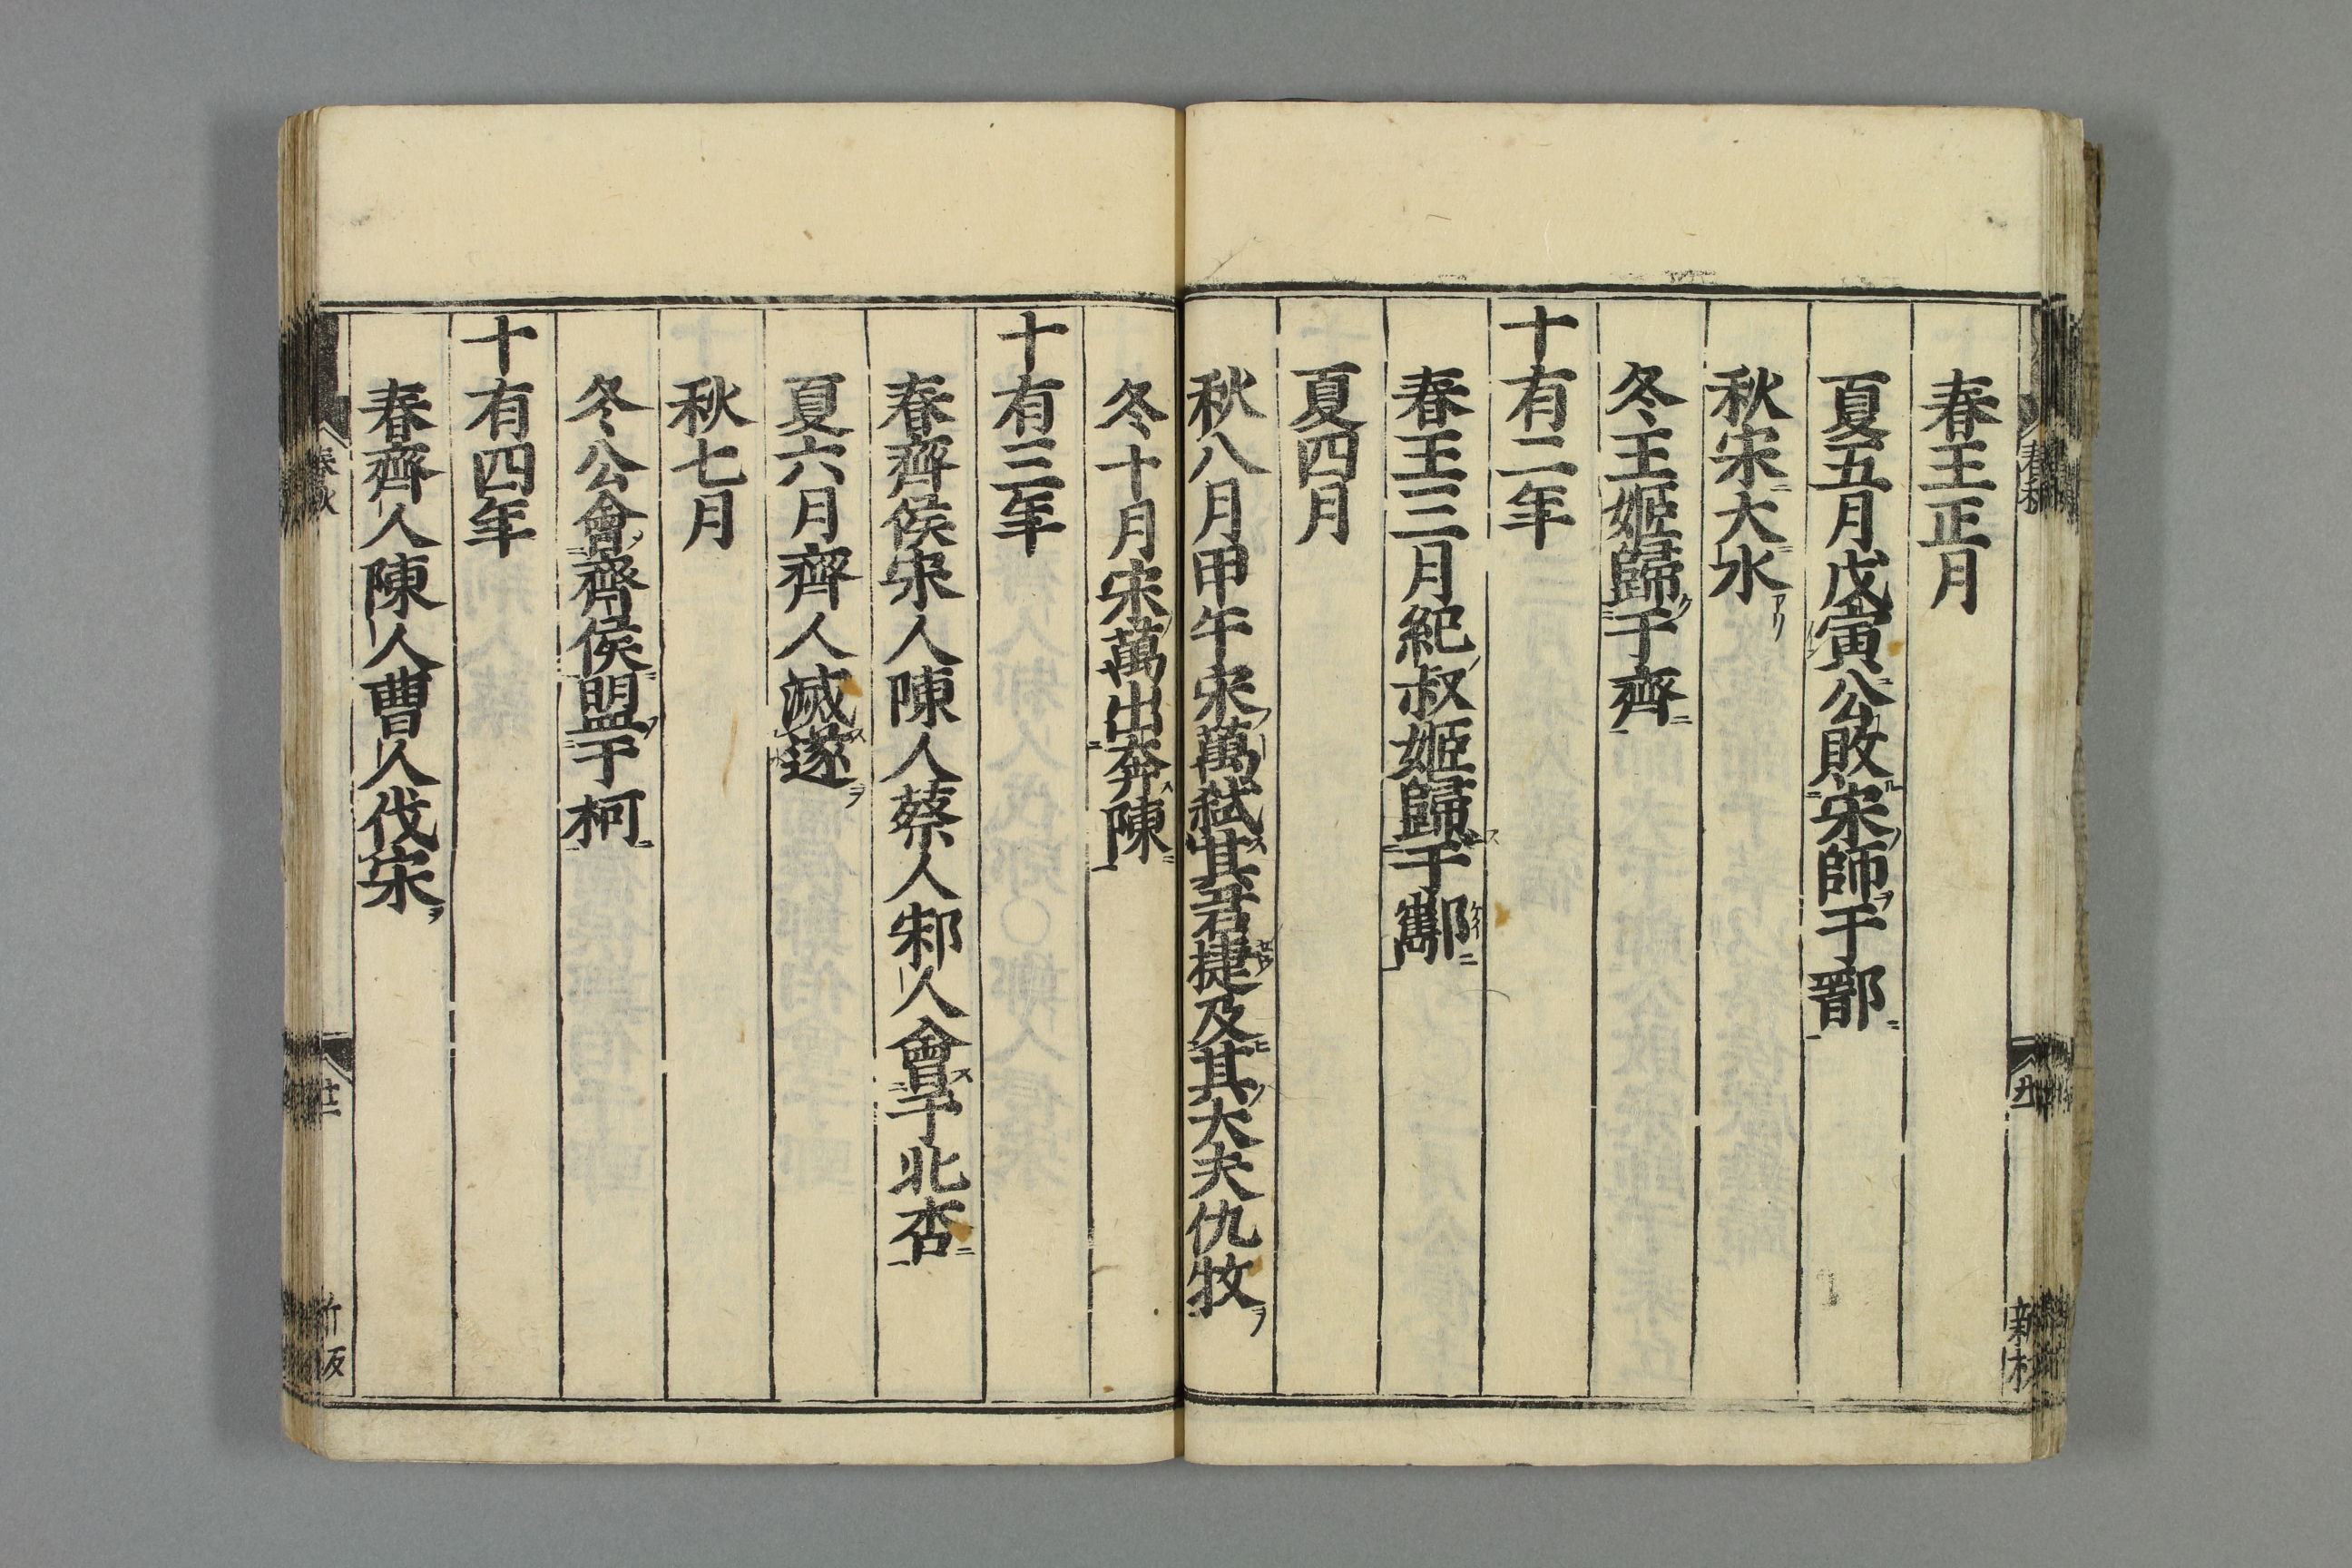 春王正月
夏五月戊寅公敗宋師于鄑
秋宋大水
冬王姬歸于齊
十有二年
春王三月紀叔姬歸于酅
夏四月
秋八月甲午宋萬弑其君捷及其大夫仇牧
冬十月宋萬出奔陳
十有三年
春齊侯宋人陳人蔡人邾人會于北杏
夏六月齊人滅遂
秋七月
冬公會齊侯盟于柯
十有四年
春齊人陳人曹人伐宋
春秋